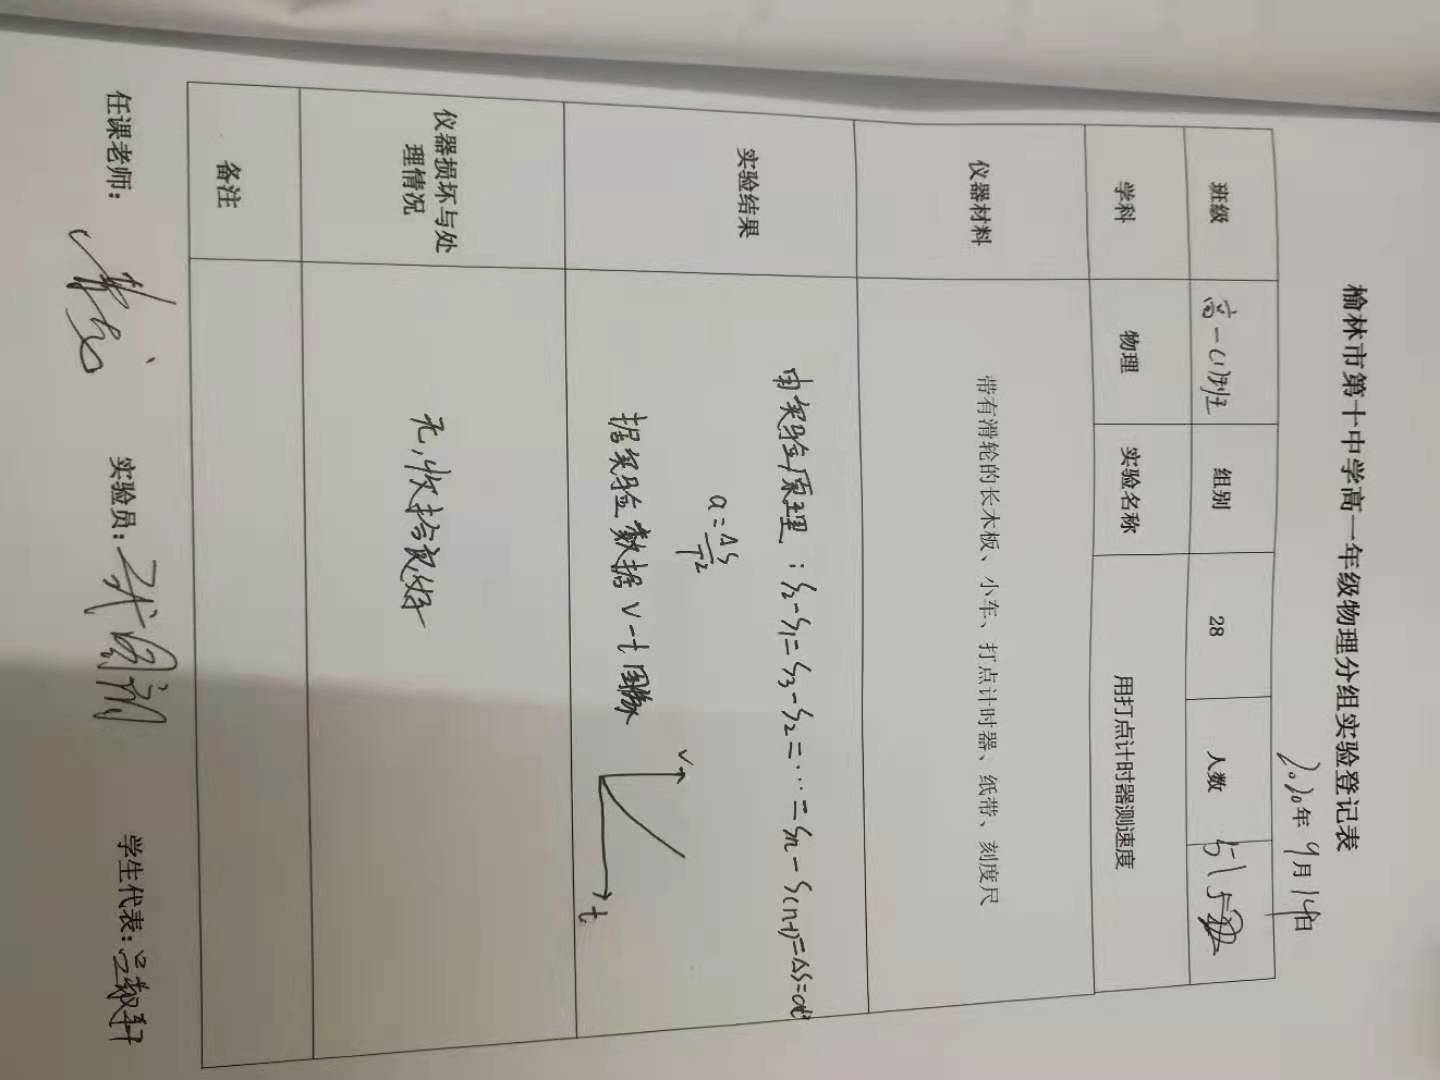 榆林市第十中学高一年级物理分组实验登记表
2020年9月14日
班级 高一(1)班 组别 28 人数 51
学科 物理 实验名称 用打点计时器测速度
仪器材料 带有滑轮的长木板、小车、打点计时器、纸带、刻度尺
实验结果
由实验原理：S₂-S₁=S₃-S₂=…=Sn-S(n-1)=ΔS=at²
a=ΔS/T²
据实验数据 v-t图像
v
t
仪器损坏与处
理情况
无,收拾良好
备注
任课老师：
实验员：
学生代表：